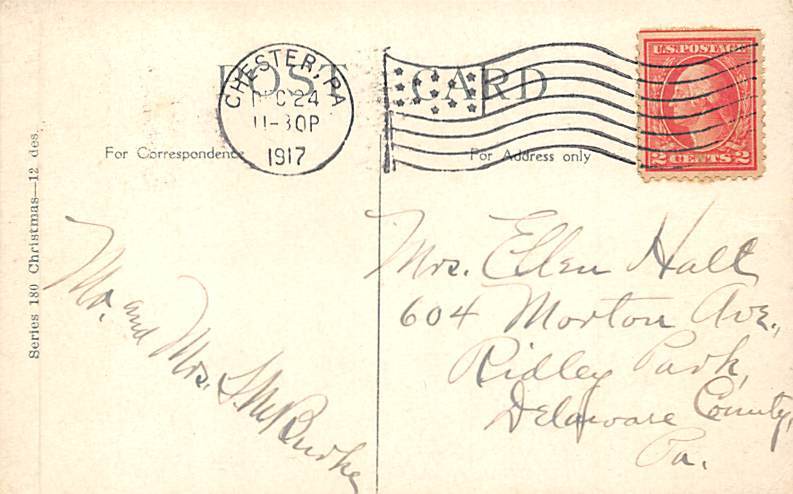 POST CARD
CHESTER, PA
DEC 24
11-30P
1917
U.S. POSTAGE
2 CENTS 2
For Correspondence
For Address only
Series 180 Christmas—12 des.
Mr. and Mrs.
Mrs. Ellen Hall
604 Morton Ave.,
Ridley Park,
Delaware County,
Pa.